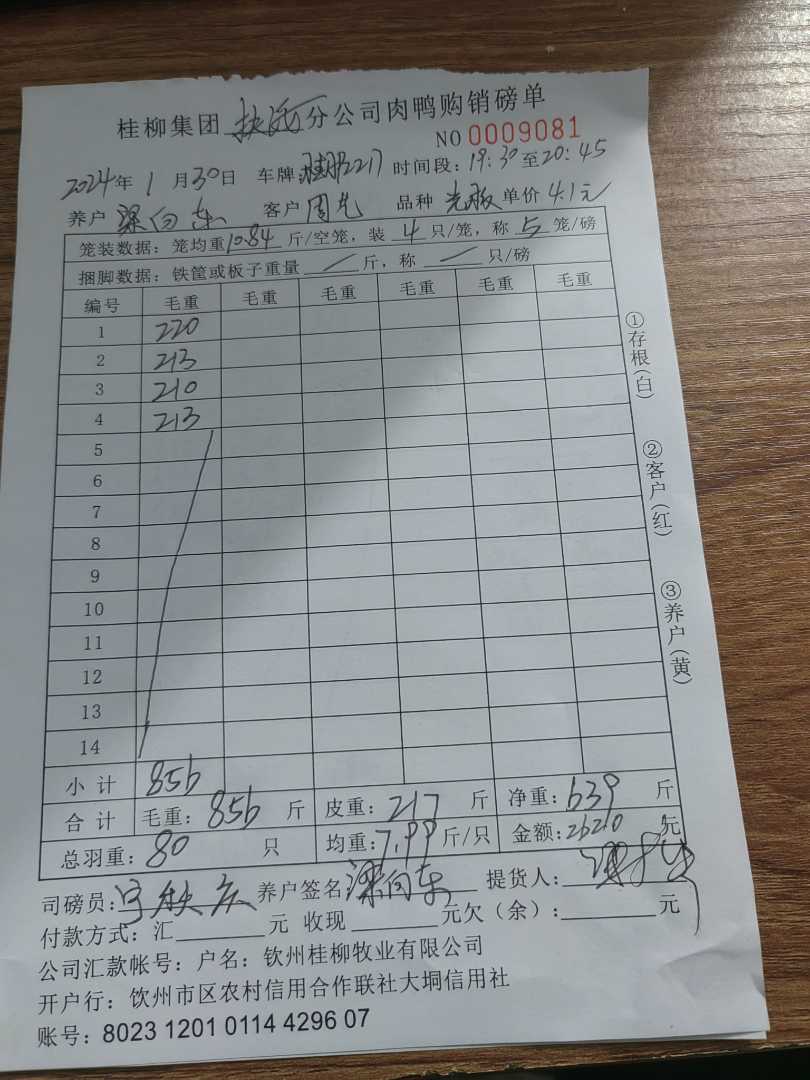 桂柳集团 分公司肉鸭购销磅单
NO 0009081
2024年 1 月30日 车牌: 2217 时间段: 19:30至20:45
养户 梁向东 客户 周 品种 光板 单价 4.1元
笼装数据: 笼均重10.84 斤/空笼，装 4 只/笼，称 5 笼/磅
捆脚数据: 铁筐或板子重量 / 斤，称 / 只/磅
编号 毛重 毛重 毛重 毛重 毛重 毛重
1 220
2 213
3 210
4 213
5
6
7
8
9
10
11
12
13
14
小 计 856
合 计 毛重: 856 斤 皮重: 217 斤 净重: 639 斤
总羽重: 80 只 均重: 7.99 斤/只 金额: 2620 元
司磅员: 养户签名 梁向东 提货人:
付款方式: 汇 元 收现 元欠（余）: 元
公司汇款帐号: 户名: 钦州桂柳牧业有限公司
开户行: 钦州市区农村信用合作联社大垌信用社
账号: 8023 1201 0114 4296 07
①存根(白)
②客户(红)
③养户(黄)